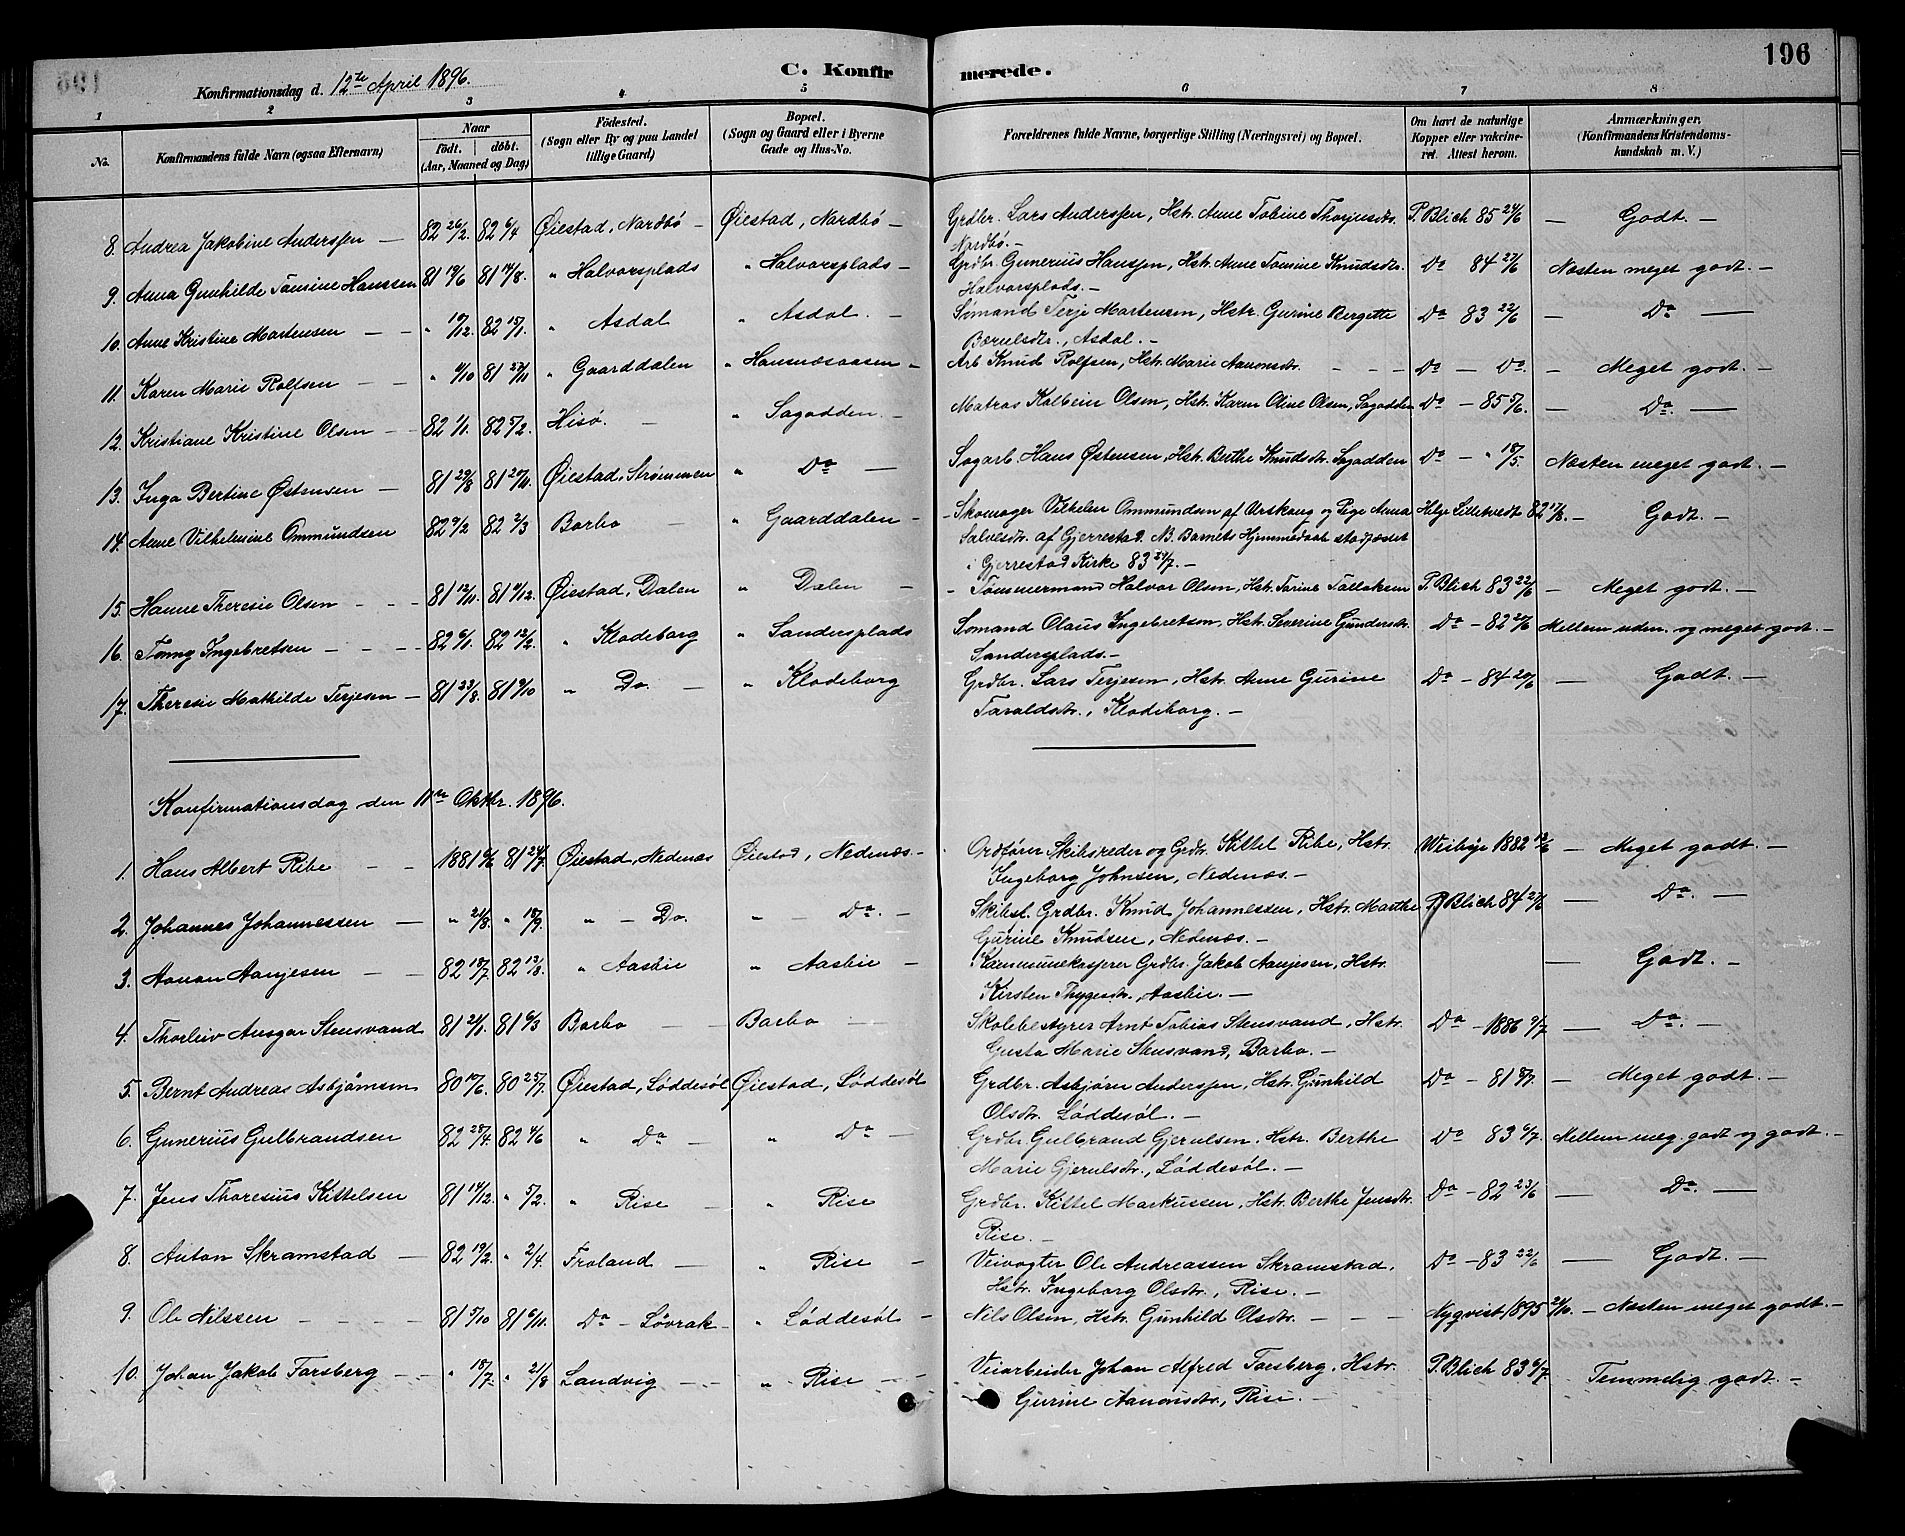 C. Konfirmerede.
196
Konfirmationsdag d. 12te April 1896.
1 2 3 4 5 6 7 8
No.
Konfirmandens fulde Navn (ogsaa Efternavn)
Naar
födt. döbt.
(Aar, Maaned og Dag)
Födested.
(Sogn eller By og paa Landet
tillige Gaard)
Bopæl.
(Sogn og Gaard eller i Byerne
Gade og Hus-No.
Forældrenes fulde Navne, borgerlige Stilling (Næringsvei) og Bopæl.
Om havt de naturlige
Kopper eller vakcine-
ret. Attest herom.
Anmærkninger.
(Konfirmandens Kristendoms-
kundskab m. V.)
8. Andrea Jakobine Anderssen — 82 26/2. 82 6/4 Øiestad, Nardbö — Øiestad, Nardbö — Grdbr. Lars Anderssen, Hstr. Anne Tobine Thorjusdtr. P. Blich 85 24/6 — Godt. —
Nardbö. —
9. Anna Gunhilde Tomine Hanssen 81 19/6 81 14/8. " Halvorsplads " Halvorsplads — Grdbr. Gunerius Hanssen, Hstr. Anne Tomine Knudsdtr. Do 84 27/6 Næsten meget godt. —
Halvorsplads. —
10. Anne Kristine Martensen — — " 19/12. 82 15/1. " Asdal " Asdal. — Sömand Terje Martensen, Hstr. Gurine Bergette Do 83 22/6 — Do —
Bærulsdtr., Asdal. —
11. Karen Marie Rolfsen — — " 4/10 81 27/11 " Gaarddalen " Hansnæsaasen — Arb. Knud Rolfsen, Hstr. Marie Aanonsdtr. — — — Do — Do. — Meget godt. —
12. Kristiane Kristine Olsen — — 82 1/1. 82 5/2. Hisö. — " Sagodden. — Matros Kolbein Olsen, Hstr. Karen Oline Olsen, Sagodden Do — 85 5/6. — Do. —
13. Inga Bertine Østensen — 81 29/8 81 20/11. Øiestad, Strömmen " Do — Sagarb. Hans Østensen, Hstr. Berthe Knudsdtr. Sagodden Do — " 18/5. Næsten meget godt. —
14. Anne Vilhelmine Ommundsen 82 9/2 82 2/3 Barbo — " Gaarddalen — — Skomager Vilhelm Ommundsen af Urskoug og Pige Anna Helge Lilletvedt 82 17/8. — Godt. —
Salvesdtr. af Gjerrestad. NB. Barnets Hjemmedaab stadfæstet
i Gjerrestad Kirke 83 /7. —
15. Hanne Theresie Olsen — — — 81 12/11. 81 4/12. Øiestad, Dalen " Dalen — — Tömmermand Halvor Olsen, Hstr. Tarine Tallaksen P. Blich 83 22/6 — Meget godt. —
16. Tomy Ingebretsen — — — 82 6/1. 82 12/2. " Klodeborg " Sandersplads Sömand Olaus Ingebretsen, Hstr. Severine Gundersdtr. Do — 82 20/6 Mellem uden. og meget godt. —
Sandersplads. —
17. Theresie Mathilde Terjesen — 81 23/8. 81 9/10 " Do. — " Klodeborg Grdbr. Lars Terjesen, Hstr. Anne Gurine Do — 84 20/6 — Godt. —
Taraldsdtr., Klodeborg. —
Konfirmationsdag den 11te Oktbr. 1896.
1. Hans Albert Ribe — — 1881 6/6 81 24/7 Øiestad, Nedenæs Øiestad, Nedenæs. — Ordförer Skibsreder og Grdbr. Kittel Ribe, Hstr. Weibye 1882 12/6 — Meget godt. —
Ingeborg Johnsen, Nedenæs. —
2. Johannes Johannessen — " 21/8. " 18/9. " — Do. " — Do. — Skibsl. Grdbr. Knud Johannessen, Hstr. Marthe P. Blich 84 27/6 — Do. —
Gurine Knudsen, Nedenæs. —
3. Aanon Aanjesen — — 82 18/7 82 13/8. " Aasbie " Aasbie — Kommunekasserer Grdbr. Jakob Aanjesen, Hstr. — Godt. —
Kirsten Thygesdtr., Aasbie. —
4. Thorleiv Ansgar Stensvand 81 21/1. 81 6/3 Barbo — Barbo — Skolebestyrer Arnt Tobias Stensvand, Hstr. Do — 1886 9/7 — Do. —
Gusta Marie Stensvand, Barbo. —
5. Bernt Andreas Asbjörnsen 80 17/6. 80 25/7. Øiestad, Løddesøl Øiestad, Løddesøl Grdbr. Asbjörn Anderssen, Hstr. Gunhild Do — 81 8/7. — Meget godt. —
Olsdtr. Løddesøl. —
6. Gunerius Gulbrandsen 82 28/4. 82 4/6 " Do — " Do — Grdbr. Gulbrand Gjerulsen. Hstr. Berthe Do 83 6/7. Mellem meg. godt og godt. —
Marie Gjerulsdtr., Løddesøl. —
7. Jens Thoresius Kittelsen 81 14/12. " 5/2. " Rise — " Rise Grdbr. Kittel Markussen, Hstr. Berthe Jensdtr. Do — 82 23/6 — Do. —
Rise. —
8. Anton Skramstad — 82 19/2. " 2/4. Froland — " Rise — Veivogter Ole Andreassen Skramstad, Do — 83 22/6 — Godt. —
Hstr. Ingeborg Olsdtr., Rise. —
9. Ole Nilssen — — — — 81 5/10 81 6/11. Do — Løvrak — " Løddesøl — Nils Olsen, Hstr. Gunhild Olsdtr. — — — Nyqvist 1895 21/10. — Næsten meget godt. —
10. Johan Jakob Forsberg — — " 18/7. " 21/8 Landvig — — " Rise — — Veiarbeider Johan Alfred Forsberg, Hstr. P. Blich 83 6/7 Temmelig godt. —
Gurine Aanonsdtr., Rise. —